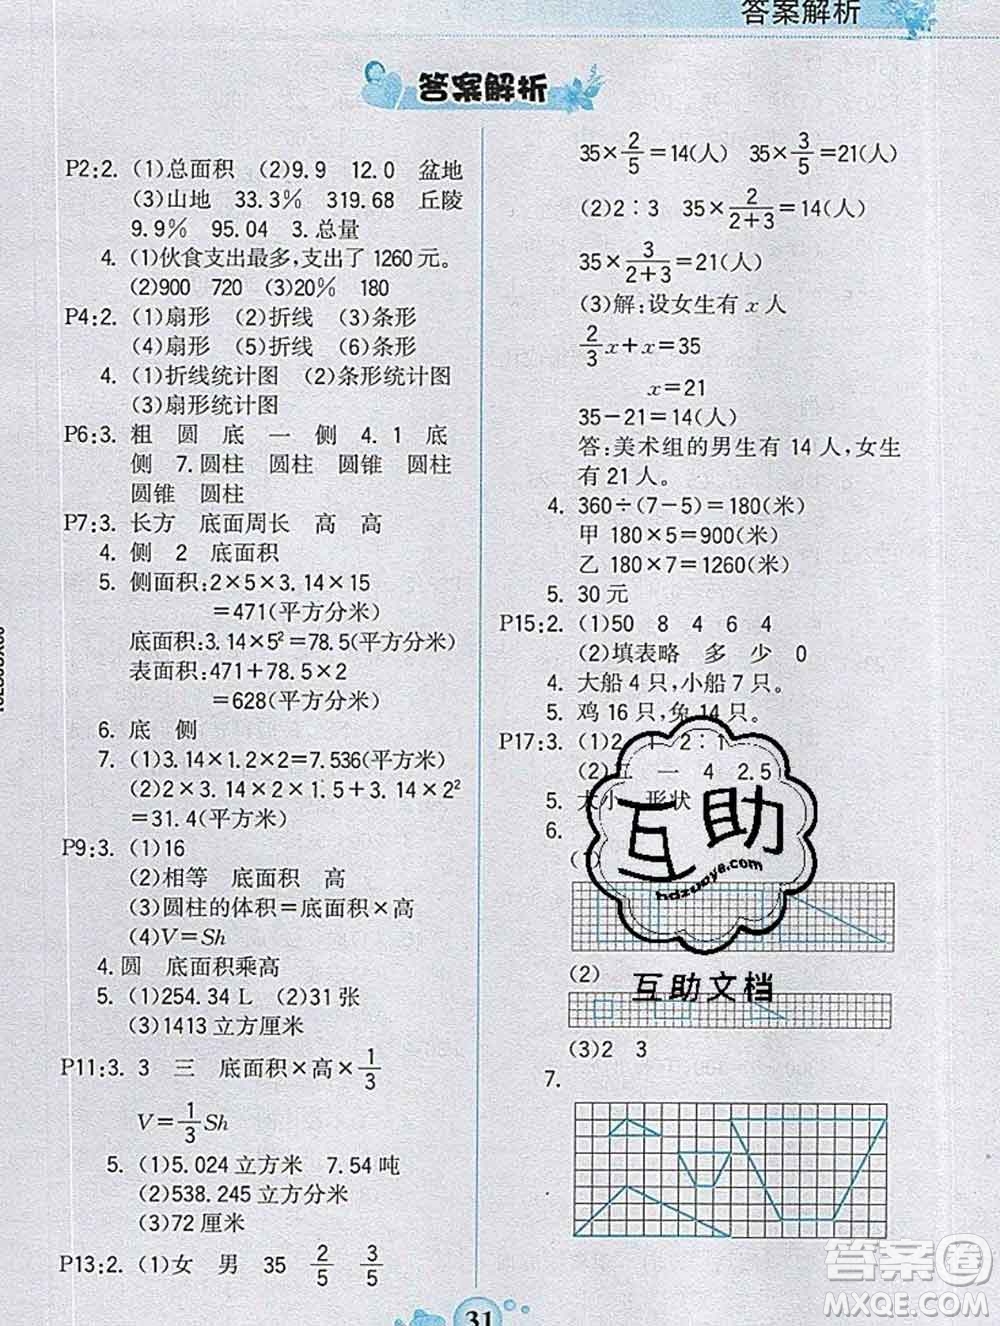 答案解析
答案解析
P2:2. (1)总面积 (2)9.9 12.0 盆地
(3)山地 33.3% 319.68 丘陵
9.9% 95.04 3.总量
4. (1)伙食支出最多,支出了 1260元。
(2)900 720 (3)20% 180
P4:2. (1)扇形 (2)折线 (3)条形
(4)扇形 (5)折线 (6)条形
4. (1)折线统计图 (2)条形统计图
(3)扇形统计图
P6:3. 粗 圆 底 一 侧 4.1 底
侧 7.圆柱 圆柱 圆锥 圆柱
圆锥 圆柱
P7:3. 长方 底面周长 高 高
4. 侧 2 底面积
5. 侧面积:2×5×3.14×15
=471(平方分米)
底面积:3.14×5²=78.5(平方分米)
表面积:471+78.5×2
=628(平方分米)
6. 底 侧
7. (1)3.14×1.2×2=7.536(平方米)
(2)2×3.14×2×1.5+3.14×2²
=31.4(平方米)
P9:3. (1)16
(2)相等 底面积 高
(3)圆柱的体积=底面积×高
(4)V=Sh
4.圆 底面积乘高
5. (1)254.34 L (2)31张
(3)1413立方厘米
P11:3. 3 三 底面积×高×1/3
V=1/3Sh
5. (1)5.024立方米 7.54吨
(2)538.245立方分米
(3)72厘米
P13:2. (1)女 男 35 2/5 3/5
35×2/5=14(人) 35×3/5=21(人)
(2)2:3 35×2/(2+3)=14(人)
35×3/(2+3)=21(人)
(3)解:设女生有 x 人
2/3x+x=35
x=21
35-21=14(人)
答:美术组的男生有 14 人,女生
有 21 人。
4. 360÷(7-5)=180(米)
甲 180×5=900(米)
乙 180×7=1260(米)
5. 30元
P15:2. (1)50 8 4 6 4
(2)填表略 多 少 0
4. 大船 4 只,小船 7 只。
5. 鸡 16 只,兔 14 只。
P17:3. (1)2 1 2:1
(2)一 4 2.5
5. 大小 形状
6.
互助
hdzuoye.com
(2)
互助文档
(3)2 3
7.
31
答案圈
MXQE.COM